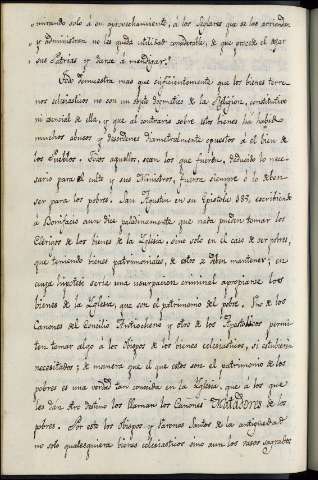 mirando solo á su aprovechamiento, á los seglares que se los arriendan
y administran no les queda utilidad considerable, de que procede el dejar
sus Patrias y darse á mendigar.
Todo demuestra mas que suficientemente que los bienes terre
nos eclesiasticos no son un objeto dogmatico de la Religion, constitutivo
ni esencial de ella, y que al contrario sobre estos bienes ha habido
muchos abusos y desordenes diametralmente opuestos á el bien de
los Pueblos. Todos aquellos, sean los que fueren, deducido lo nece-
sario para el culto y sus Ministros, fueron siempre ó lo deben
ser para los pobres. San Agustin en su Epistola 185, escribiendo
á Bonifacio aun dice paladinamente que nada pueden tomar los
Clerigos de los bienes de la Yglesia sino solo en el caso de ser pobres,
que teniendo bienes patrimoniales, de estos se deben mantener; en
cuya hipotesi seria una usurpacion criminal apropiarse los
bienes de la Yglesia, que son el patrimonio del pobre. Uno de los
Canones del Concilio Antiocheno y otro de los Apostolicos permi-
ten tomar algo á los Obispos de los bienes eclesiasticos, si estubieren
necesitados; de manera que el que estos son el patrimonio de los
pobres es una verdad tan conocida en la Yglesia, que á los que
les dan otro destino los llaman los Canones Matadores de los
pobres. Por esto los Obispos y Varones Santos de la antigüedad
no solo qualesquiera bienes eclesiasticos sino aun los vasos sagrados